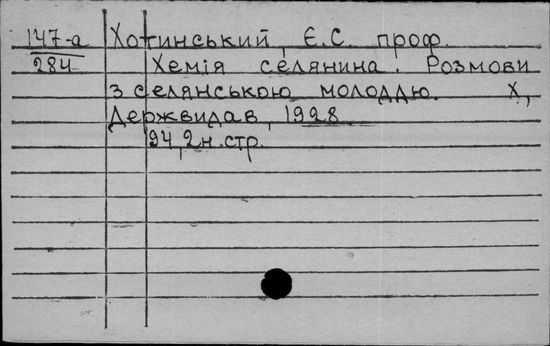 147-а Хотинський, Є.С. проф.
284 Хемія селянина. Розмови
з селянською молоддю. Х,
Держвидав, 1928
94, 2н.стр.